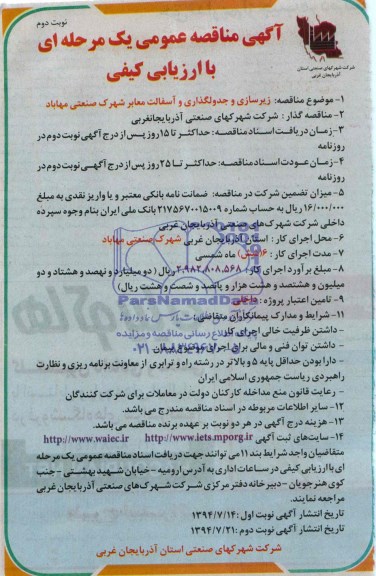 نوبت دوم
آگهی مناقصه عمومی یک مرحله ای
با ارزیابی کیفی
شرکت شهرکهای صنعتی استان
آذربایجان غربی
۱- موضوع مناقصه: زیرسازی و جدولگذاری و آسفالت معابر شهرک صنعتی مهاباد
۲- مناقصه گذار : شرکت شهرکهای صنعتی آذربایجانغربی
۳- زمان دریافت اسناد مناقصه: حداکثر تا ۱۵ روز پس از درج آگهی نوبت دوم در
روزنامه
۴- زمان عودت اسناد مناقصه: حداکثر تا ۲۵ روز پس از درج آگهی نوبت دوم در
روزنامه
۵- میزان تضمین شرکت در مناقصه: ضمانت نامه بانکی معتبر و یا واریز نقدی به مبلغ
۱۶/۰۰۰/۰۰۰ ریال به حساب شماره ۲۱۷۵۶۷۰۰۱۵۰۰۹ بانک ملی ایران بنام وجوه سپرده
داخلی شرکت شهرک‌های صنعتی آذربایجان غربی
۶- محل اجرای کار : استان آذربایجان غربی شهرک صنعتی مهاباد
۷- مدت اجرای کار : ۶(شش) ماه شمسی
۸- مبلغ برآورد اجرای کار: ۲,۹۸۲,۸۰۸,۵۶۸ ریال (دو میلیارد و نهصد و هشتاد و دو
میلیون و هشتصد و هشت هزار و پانصد و شصت و هشت ریال)
۹- تامین اعتبار پروژه: داخلی
۱۱- شرایط و مدارک پیمانکاران متقاضی :
- داشتن ظرفیت خالی اجرای کار
- داشتن توان فنی و مالی برای اجرای
- دارا بودن حداقل پایه ۵ و بالاتر در رشته راه و ترابری از معاونت برنامه ریزی و نظارت
راهبردی ریاست جمهوری اسلامی ایران
- رعایت قانون منع مداخله کارکنان دولت در معاملات برای شرکت کنندگان
۱۲- سایر اطلاعات مربوطه در اسناد مناقصه مندرج می باشد.
۱۳- هزینه درج آگهی در هر دو نوبت بر عهده برنده مناقصه می باشد.
۱۴- سایت‌های ثبت آگهی http://www.iets.mporg.ir http://www.waiec.ir
متقاضیان واجد شرایط بند ۱۱ می توانند جهت دریافت اسناد مناقصه عمومی یک مرحله
ای با ارزیابی کیفی در ساعات اداری به آدرس ارومیه - خیابان شهید بهشتی - جنب
کوی هنرجویان - دبیرخانه دفتر مرکزی شرکت شهرک‌های صنعتی آذربایجان غربی
مراجعه نمایند.
تاریخ انتشار آگهی نوبت اول :۱۳۹۴/۷/۱۴
تاریخ انتشار آگهی نوبت دوم :۱۳۹۴/۷/۲۱
شرکت شهرکهای صنعتی استان آذربایجان غربی
ParsNamadData
۰۲۱-۸۸۳۴۹۶۷۰-۵